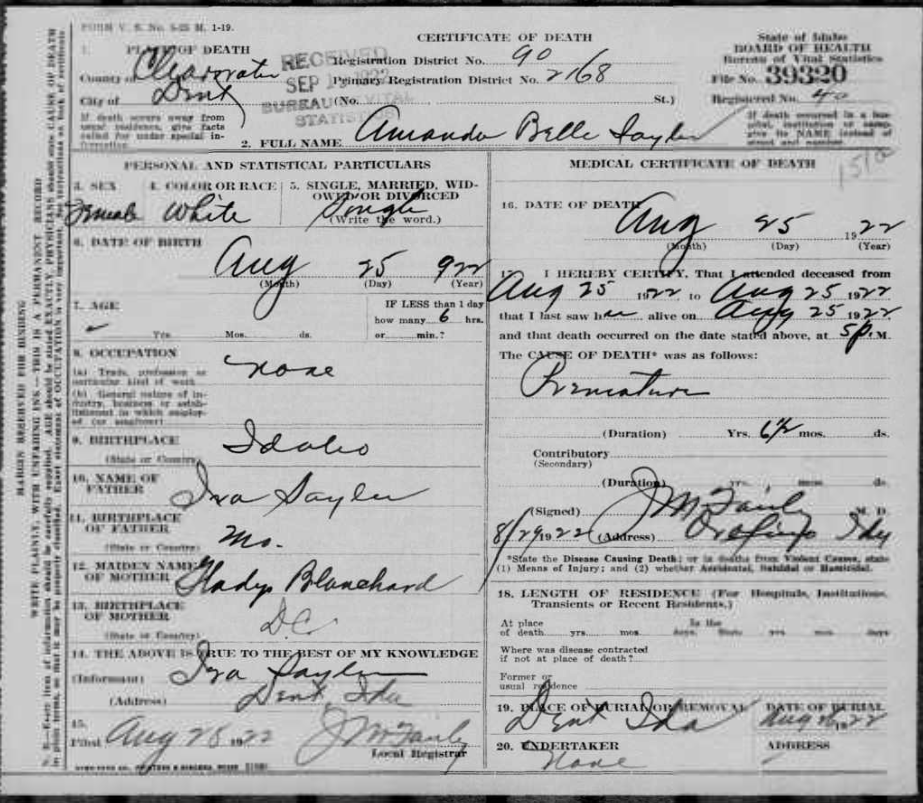 FORM V. S. No. 5-25 M. 1-19.
CERTIFICATE OF DEATH
State of Idaho
BOARD OF HEALTH
Bureau of Vital Statistics
File No. 39320
Registered No. 40
1. PLACE OF DEATH
County of Clearwater
City of Dent
RECEIVED
SEP 1922
BUREAU VITAL
STATISTICS
Registration District No. 90
Primary Registration District No. 2168
(No. St.)
If death occurs away from usual residence, give facts called for under special information
If death occurred in a hospital, institution or camp give its NAME instead of street and number.
2. FULL NAME Amanda Belle Sayler
151a
PERSONAL AND STATISTICAL PARTICULARS
3. SEX Female
4. COLOR OR RACE White
5. SINGLE, MARRIED, WIDOWED OR DIVORCED Single
(Write the word.)
6. DATE OF BIRTH
Aug 25 922
(Month) (Day) (Year)
7. AGE
Yrs. Mos. ds.
IF LESS than 1 day
how many 6 hrs.
or min.?
8. OCCUPATION none
(a) Trade, profession or particular kind of work
(b) General nature of industry, business or establishment in which employed (or employer)
9. BIRTHPLACE Idaho
(State or Country)
10. NAME OF FATHER Ira Sayler
11. BIRTHPLACE OF FATHER Mo.
(State or Country)
12. MAIDEN NAME OF MOTHER Gladys Blanchard
13. BIRTHPLACE OF MOTHER D.C.
(State or Country)
14. THE ABOVE IS TRUE TO THE BEST OF MY KNOWLEDGE
(Informant) Ira Sayler
(Address) Dent, Ida
15.
Filed Aug 28 1922 J M Fairly
Local Registrar
MEDICAL CERTIFICATE OF DEATH
16. DATE OF DEATH
Aug 25 1922
(Month) (Day) (Year)
17. I HEREBY CERTIFY, That I attended deceased from
Aug 25 1922 to Aug 25 1922
that I last saw her alive on Aug 25 1922
and that death occurred on the date stated above, at 5 P. M.
The CAUSE OF DEATH* was as follows:
Premature
(Duration) Yrs. 6½ mos. ds.
Contributory
(Secondary)
(Duration) yrs. mos. ds.
(Signed) J M Fairly M. D.
8/29 1922 (Address) Orofino Ida
*State the Disease Causing Death; or in deaths from Violent Causes, state
(1) Means of Injury; and (2) whether Accidental, Suicidal or Homicidal.
18. LENGTH OF RESIDENCE (For Hospitals, Institutions, Transients or Recent Residents.)
At place of death yrs. mos. days. In the State yrs mos days
Where was disease contracted
if not at place of death?
Former or
usual residence
19. PLACE OF BURIAL OR REMOVAL DATE OF BURIAL
Dent Ida Aug 26 1922
20. UNDERTAKER ADDRESS
None
MARGIN RESERVED FOR BINDING
WRITE PLAINLY, WITH UNFADING INK—THIS IS A PERMANENT RECORD